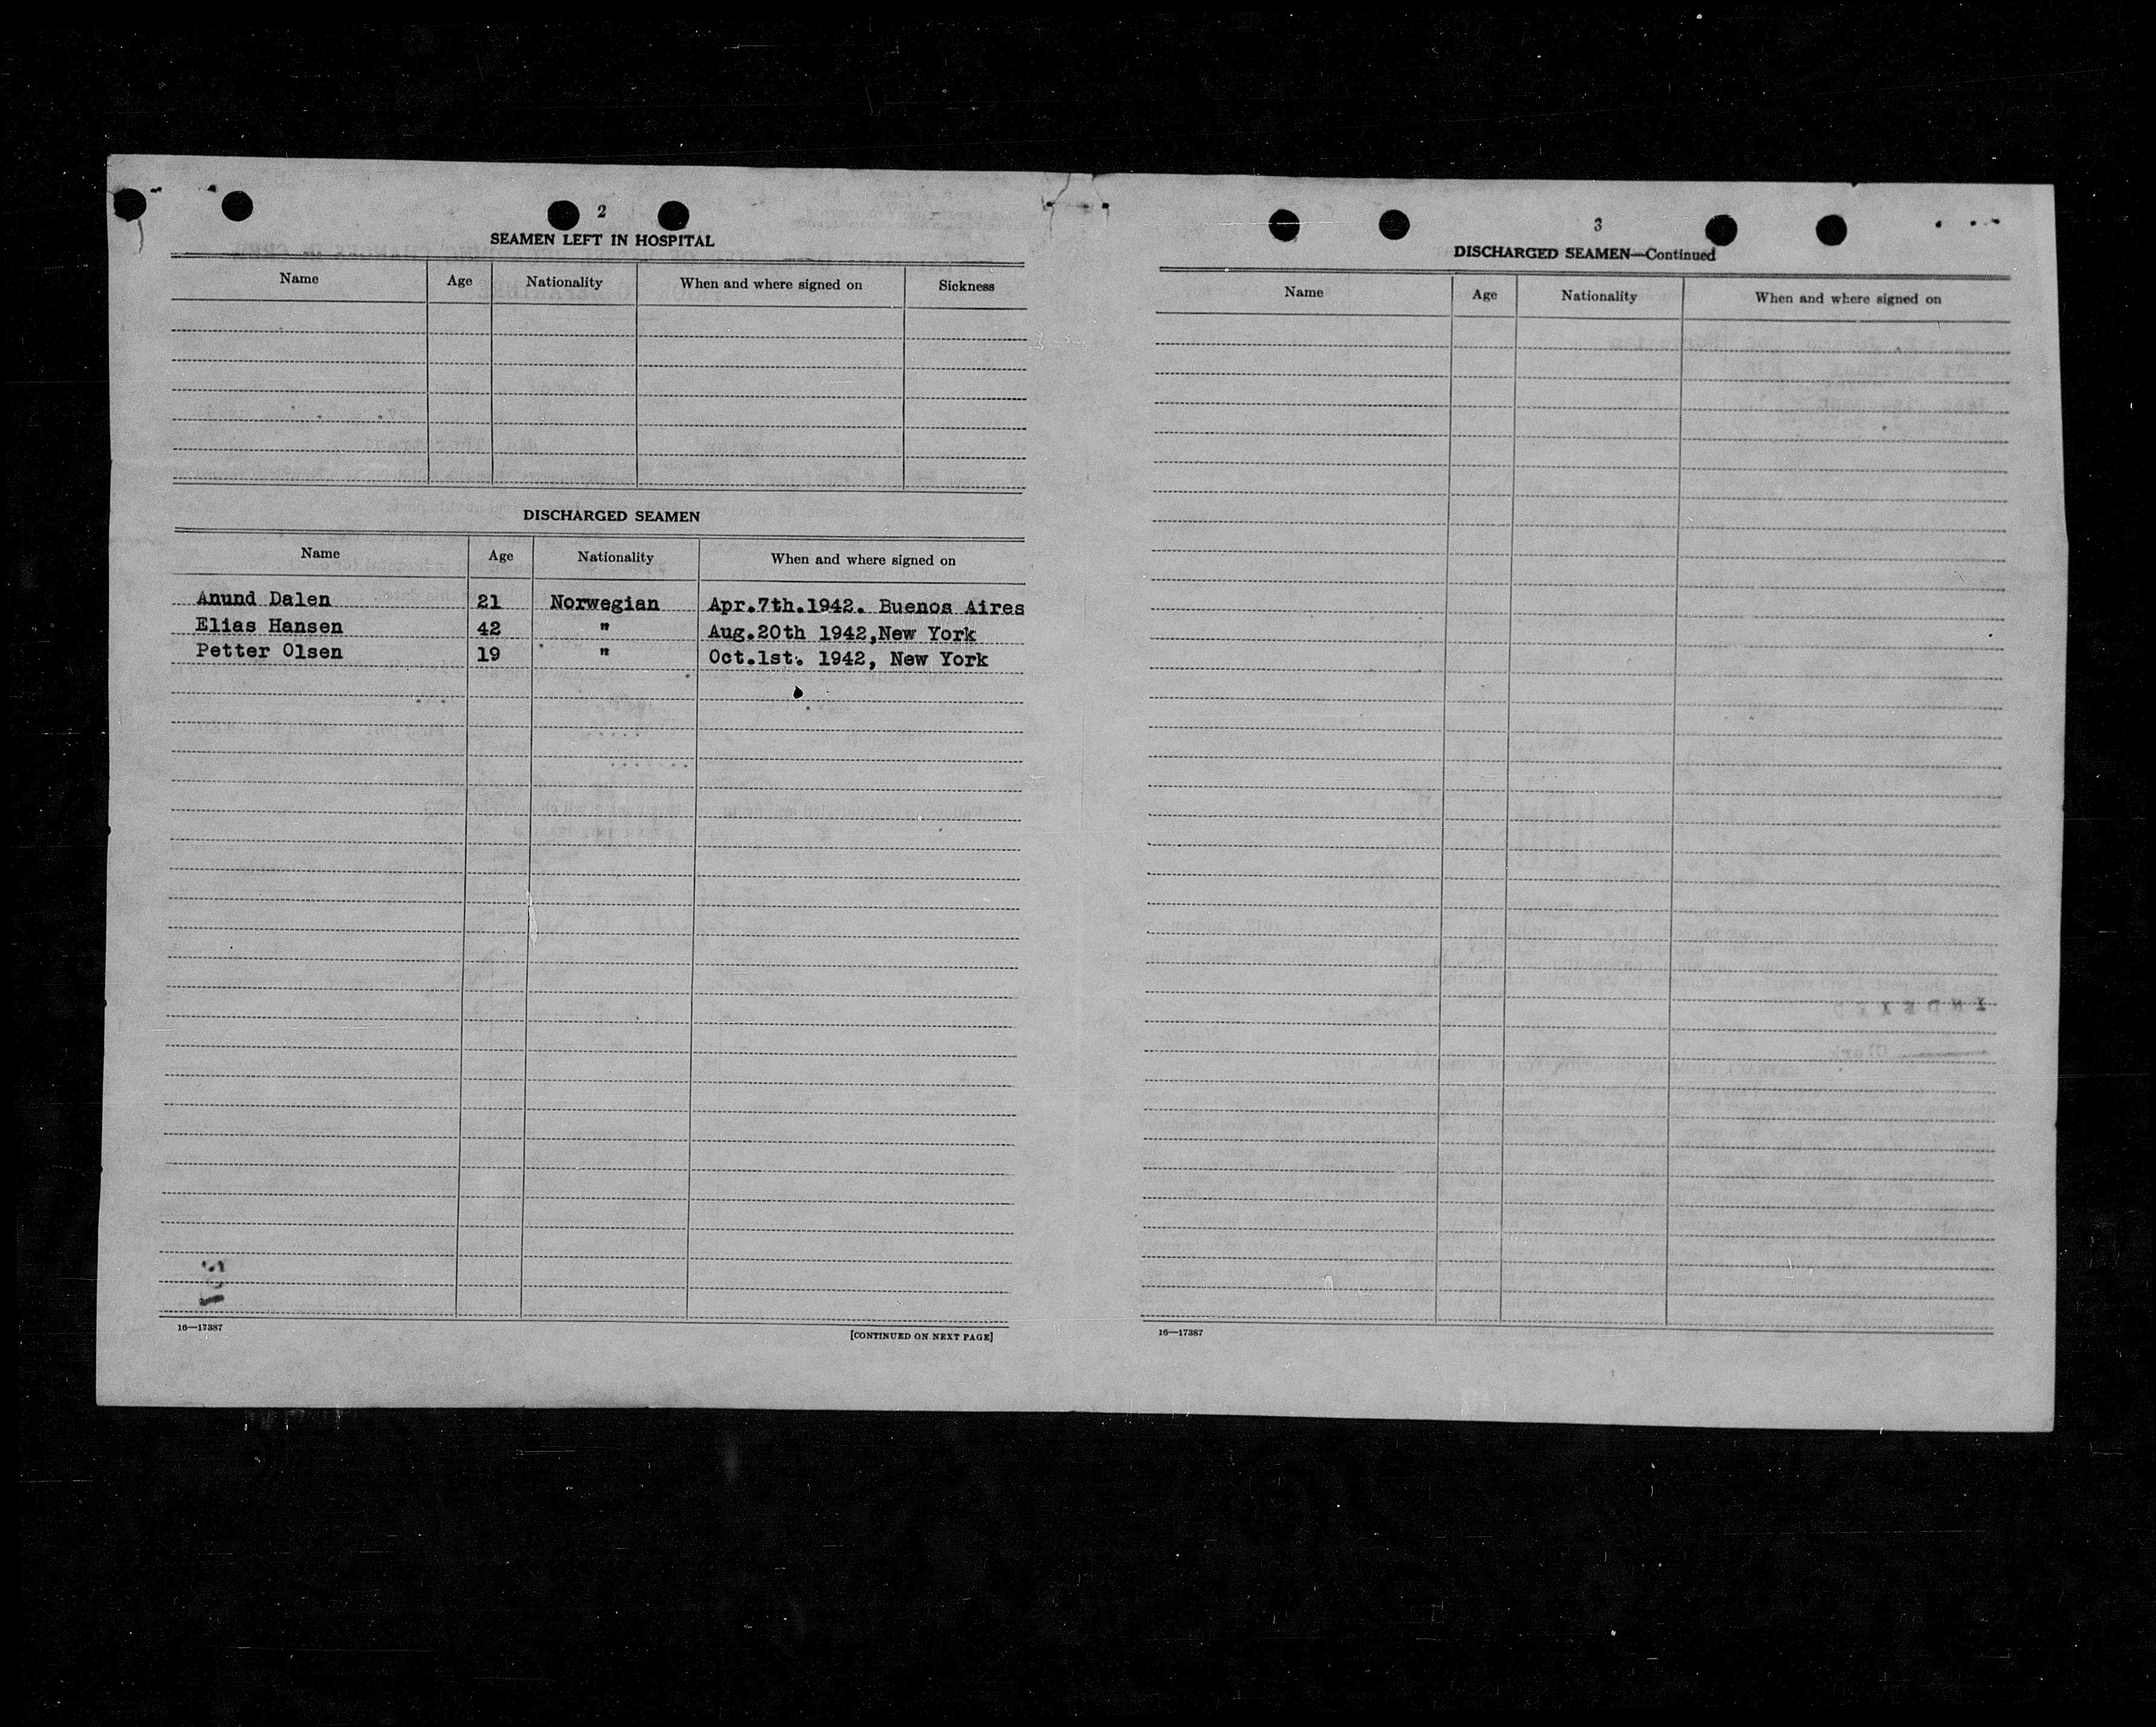 2
SEAMEN LEFT IN HOSPITAL
Name Age Nationality When and where signed on Sickness
DISCHARGED SEAMEN
Name Age Nationality When and where signed on
Anund Dalen 21 Norwegian Apr.7th.1942. Buenos Aires
Elias Hansen 42 " Aug.20th 1942,New York
Petter Olsen 19 " Oct.1st. 1942, New York
16—17387 [CONTINUED ON NEXT PAGE]
3
DISCHARGED SEAMEN—Continued
Name Age Nationality When and where signed on
16—17387